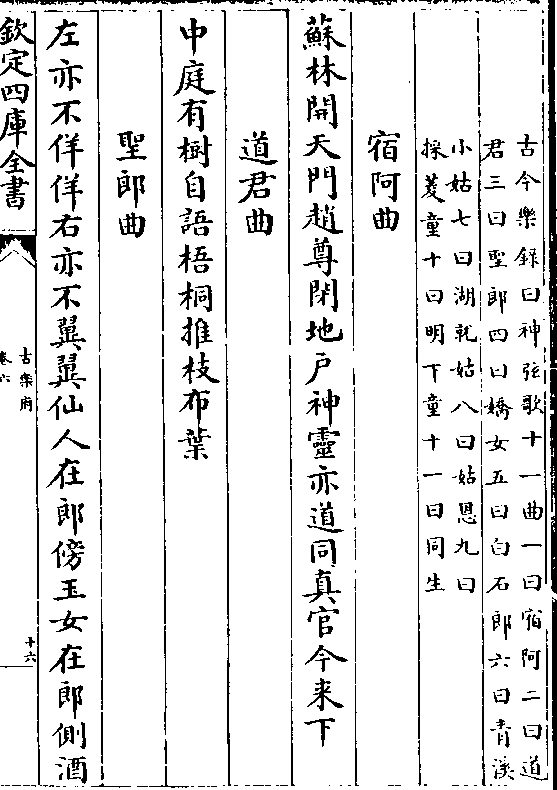 古今樂録曰神弦歌十一曲一曰宿阿二曰道
君三曰聖郎四曰嬌女五曰白石郎六曰青溪
小姑七曰湖就姑八曰姑恩九曰
採菱童十曰明下童十一曰同生
宿阿曲
蘇林開天門趙尊閉地户神靈亦道同真官今来下
道君曲
中庭有樹自語梧桐推枝布葉
聖郎曲
左亦不佯佯右亦不翼翼仙人在郎傍玉女在郎側酒
欽定四庫全書
古樂府
卷六
十六